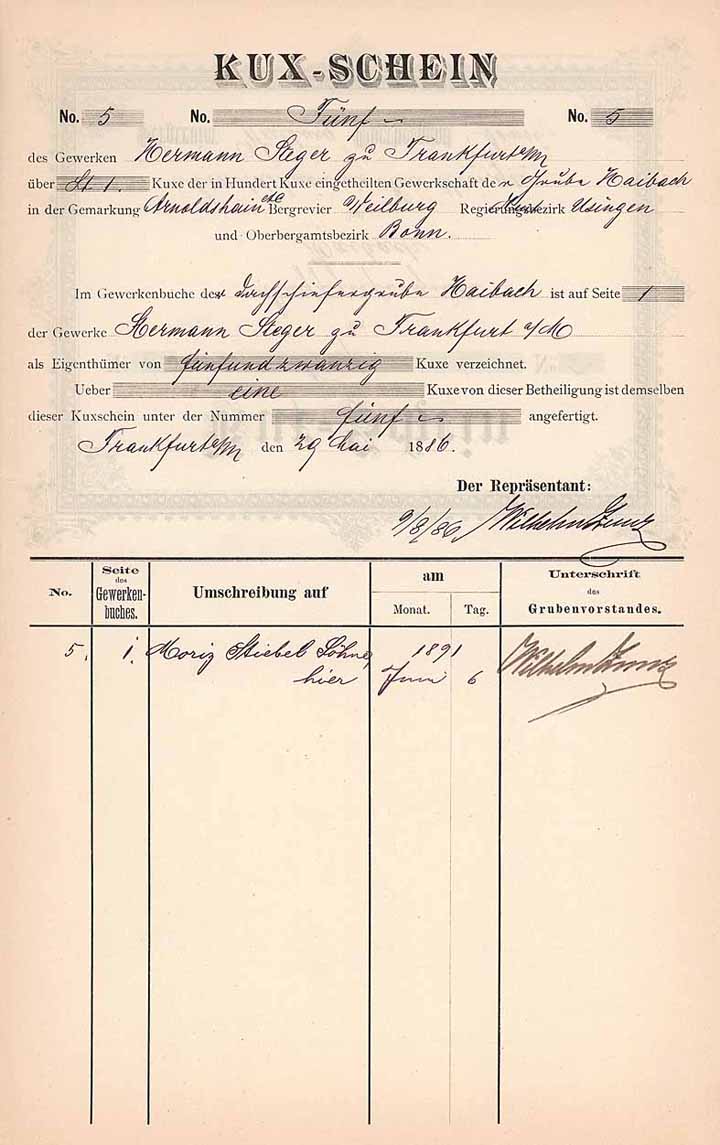 KUX-SCHEIN
No. 5 No. Fünf No. 5
des Gewerken Hermann Steger zu Frankfurt a/M
über St 1. Kuxe der in Hundert Kuxe eingetheilten Gewerkschaft der Grube Haibach
in der Gemarkung Arnoldshain etc Bergrevier Weilburg Regierungsbezirk Usingen
und Oberbergamtsbezirk Bonn.
Im Gewerkenbuche der Dachschiefergrube Haibach ist auf Seite 1
der Gewerke Hermann Steger zu Frankfurt a/M
als Eigenthümer von fünfundzwanzig Kuxe verzeichnet.
Ueber eine Kuxe von dieser Betheiligung ist demselben
dieser Kuxschein unter der Nummer fünf angefertigt.
Frankfurt a/M den 29 Mai 1886.
Der Repräsentant:
9/8/86 Wilhelm
No. Seite des Gewerken-buches. Umschreibung auf am Monat. Tag. Unterschrift des Grubenvorstandes.
5. 1. Moriz Stiebel Söhne, 1891 Wilhelm
hier Juni 6